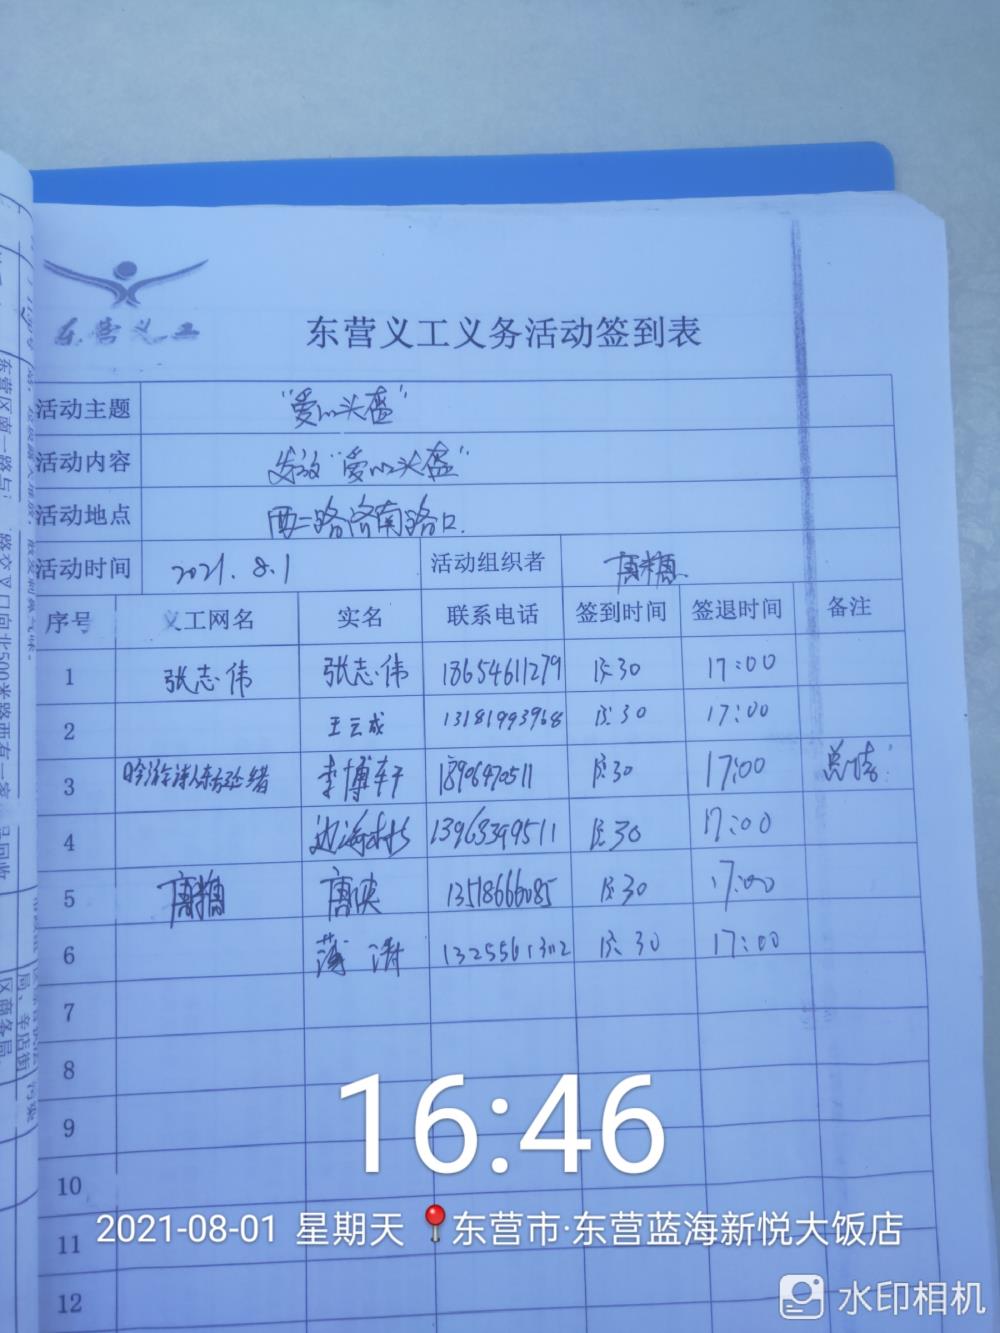 东营义工
东营义工义务活动签到表
活动主题 “爱心头盔”
活动内容 发放“爱心头盔”
活动地点 西二路济南路口.
活动时间 2021.8.1 活动组织者 唐糖
序号 义工网名 实名 联系电话 签到时间 签退时间 备注
1 张志伟 张志伟 18654611279 15:30 17:00
2 王云成 13181993968 15:30 17:00
3 吟游诗人东方 李博轩 18906470511 15:30 17:00 总结
4 边海 13963399511 15:30 17:00
5 唐糖 唐 13518666085 15:30 17:00
6 薄涛 13255613112 15:30 17:00
7
8
9
10
11
12
16:46
2021-08-01 星期天 东营市·东营蓝海新悦大饭店
水印相机